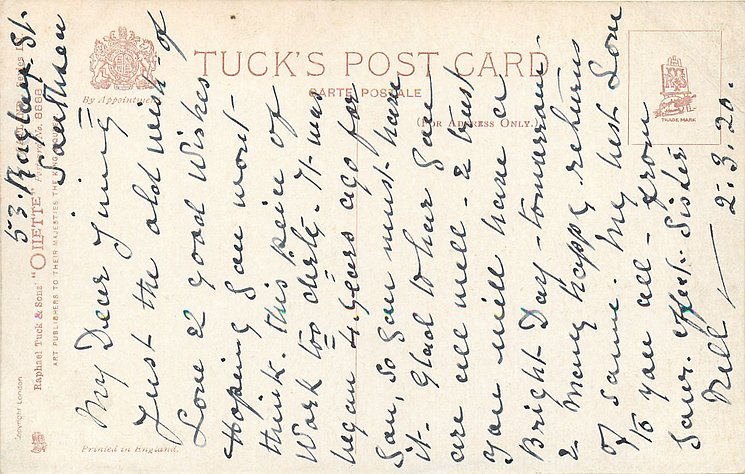 53. Railway St.
Southsea
My Dear Jimmy
Just the old wish of
Love & good Wishes
Hoping you wont
think this peice of
Work too dirty - It was
began 4 years ago for
You, so you must have
it. Glad to hear you
are all well - & trust
you will have a
Bright Day - tomorrow
& Many happy returns
of same. My best Love
to you all - from
Your Affect. Sister
Nell
2.3.20.
TUCK'S POST CARD
CARTE POSTALE
(FOR ADDRESS ONLY.)
By Appointment
TRADE MARK
Raphael Tuck & Sons' "OILETTE"
8668
ART PUBLISHERS TO THEIR MAJESTIES THE KING
Copyright London
Printed in England.